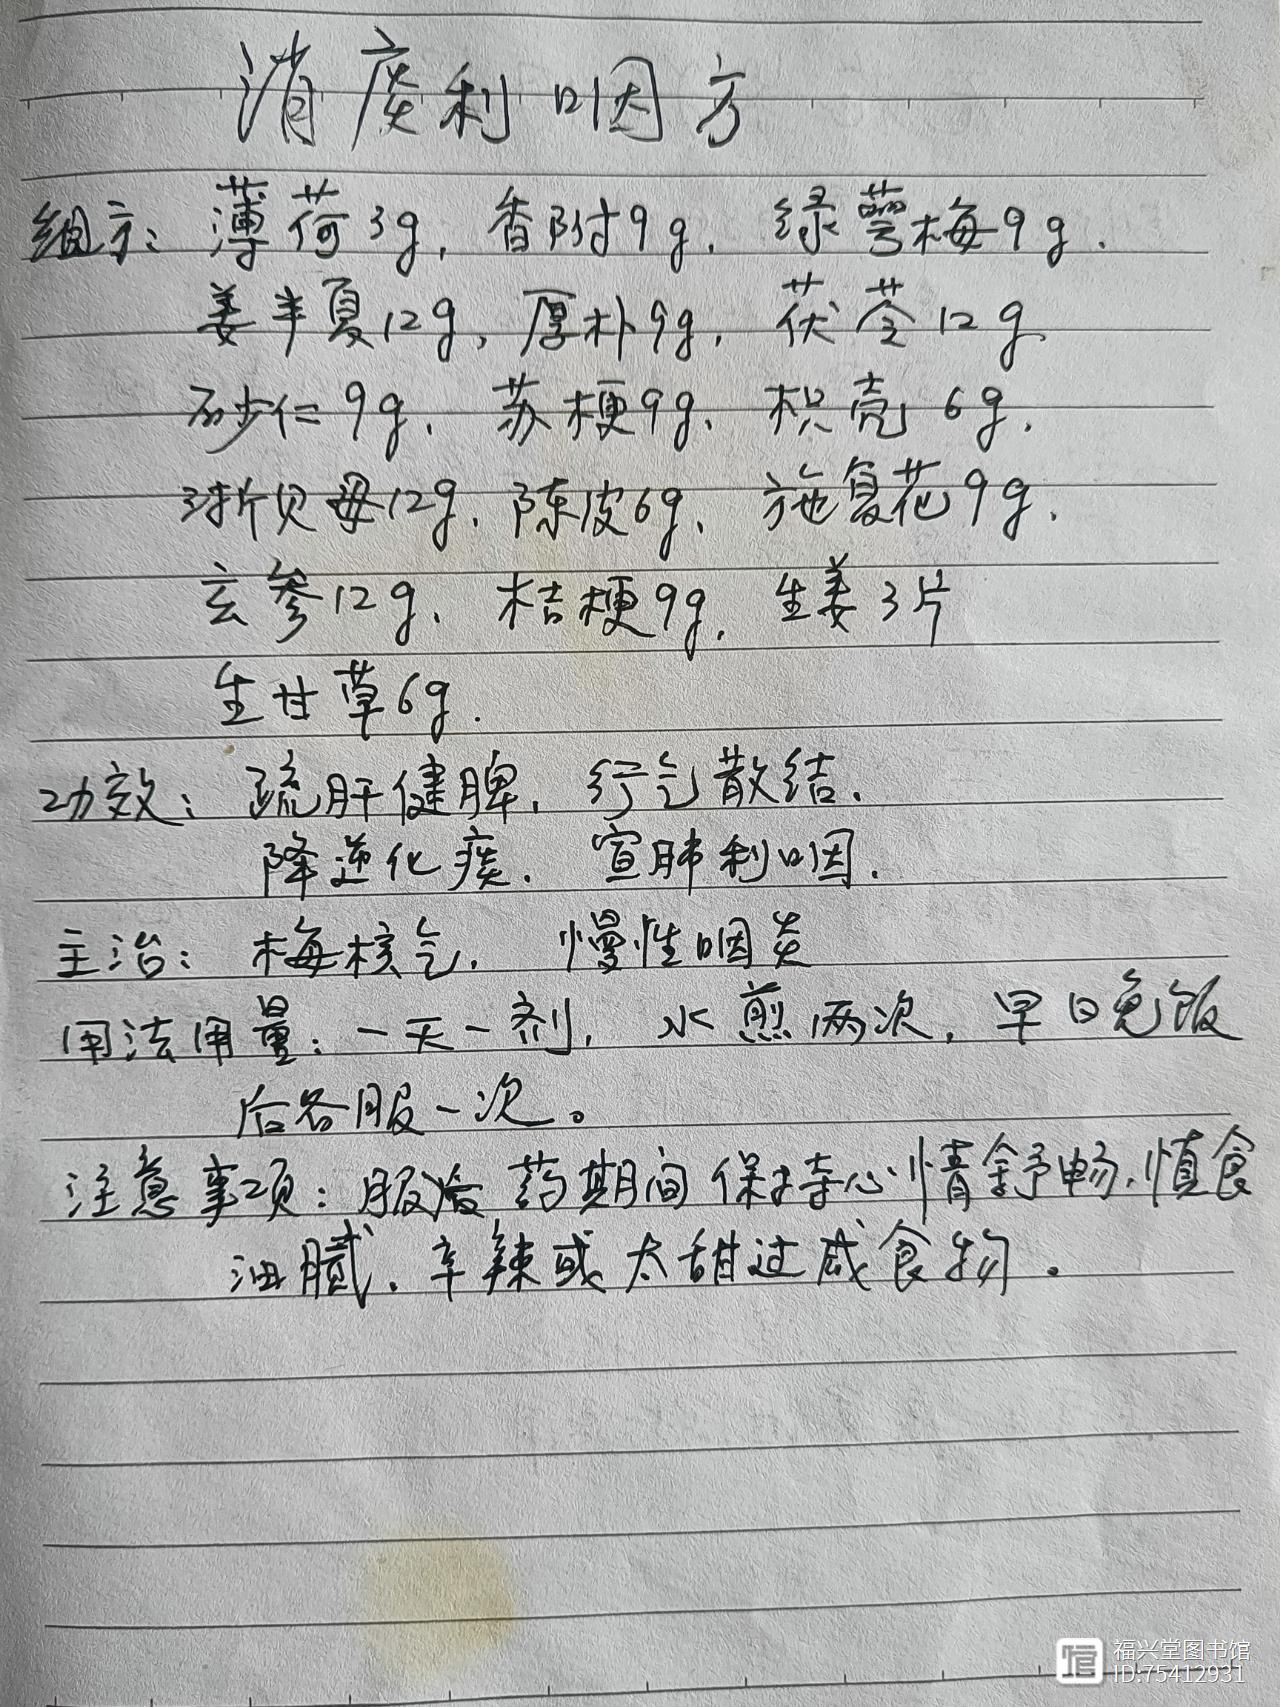 消痰利咽方
组方：薄荷3g，香附9g，绿萼梅9g，
姜半夏12g，厚朴9g，茯苓12g
砂仁9g，苏梗9g，枳壳6g，
浙贝母12g，陈皮6g，旋复花9g，
玄参12g，桔梗9g，生姜3片
生甘草6g.
功效：疏肝健脾，行气散结，
降逆化痰，宣肺利咽，
主治：梅核气，慢性咽炎
用法用量：一天一剂，水煎两次，早日晚饭
后各服一次。
注意事项：服药期间保持心情舒畅，慎食
油腻，辛辣或太甜过咸食物。
福兴堂图书馆
ID:75412931